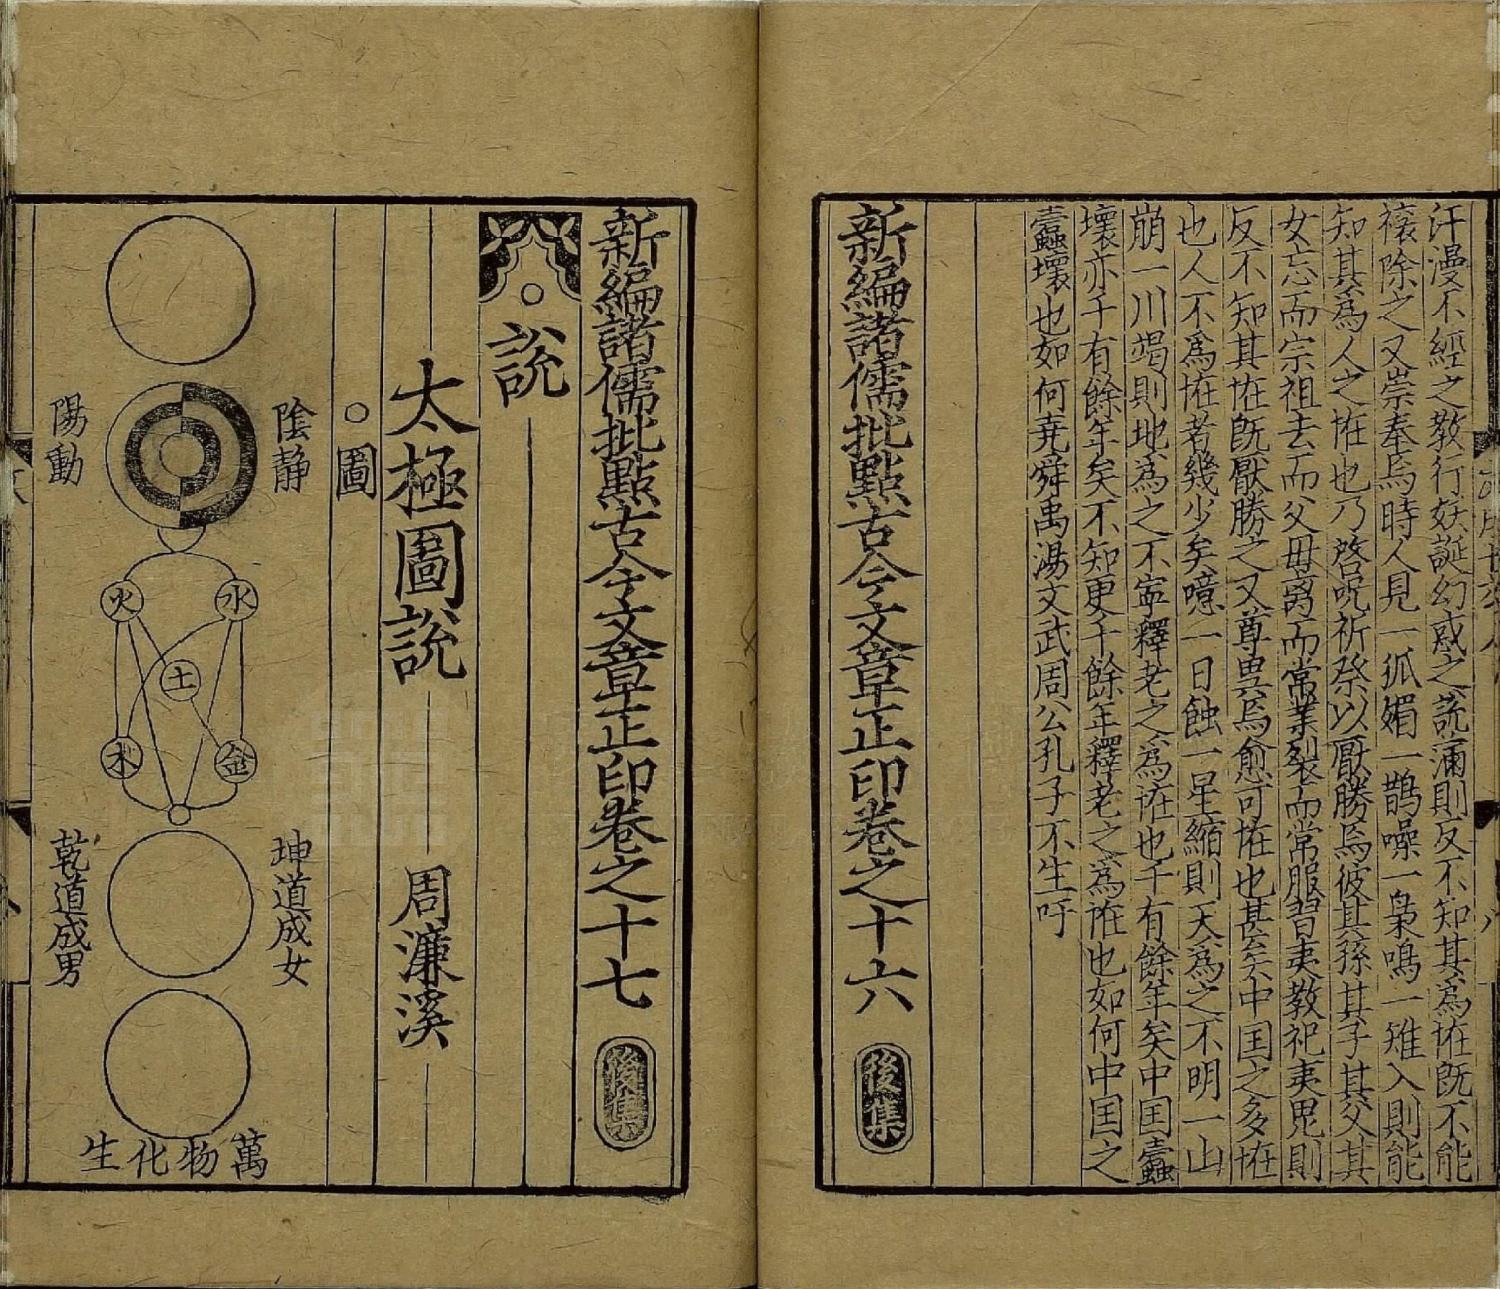 汗漫不經之教行妖誕幻惑之說滿則反不知其爲恠既不能
禳除之又崇奉焉時人見一狐媚一鵲噪一梟鳴一雉入則能
知其爲人之恠也乃啓呪祈祭以厭勝焉彼其孫其子其父其
女忘而宗祖去而父母离而常業裂而常服習夷教祀夷鬼則
反不知其恠既厭勝之又尊異焉愈可恠也甚矣中囯之多恠
也人不爲恠者幾少矣噫一日蝕一星縮則天爲之不明一山
崩一川竭則地爲之不寧釋老之爲恠也千有餘年矣中囯蠹
壞亦千有餘年矣不知更千餘年釋老之爲恠也如何中囯之
蠹壞也如何堯舜禹湯文武周公孔子不生吁
新編諸儒批點古今文章正印卷之十六 後集
新編諸儒批點古今文章正印卷之十七 後集
○說
太極圖說 周濂溪
○圖
陰静
陽動
水
火
土
金
木
坤道成女
乾道成男
萬物化生